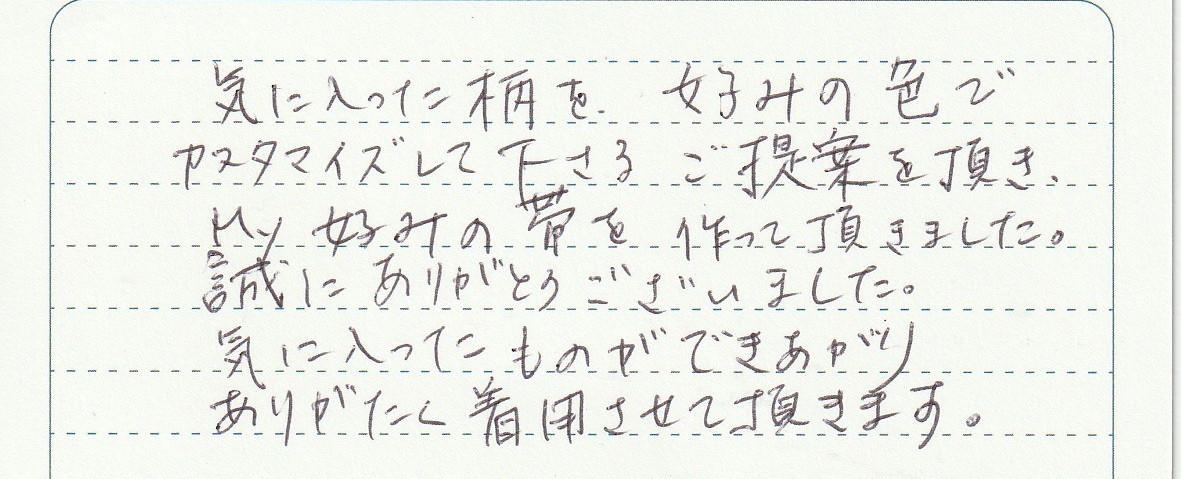 気に入った柄を、好みの色で
カスタマイズして下さる ご提案を頂き、
My 好みの帯を作って頂きました。
誠にありがとうございました。
気に入ったものができあがり
ありがたく着用させて頂きます。